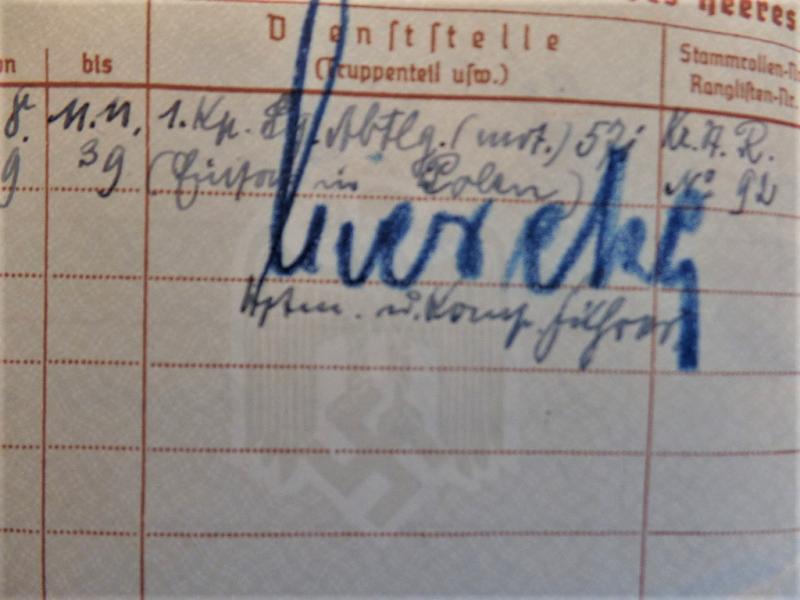 Heeres
Dienststelle
(Truppenteil usw.)
bis
Stammrollen-Nr.
Ranglisten-Nr.
11.11. 1.Kp. Abtlg. (mot.) 57; Kr.A.R.
9 39 (Einsatz in Polen) № 92
Hptm. u. Komp. Führer